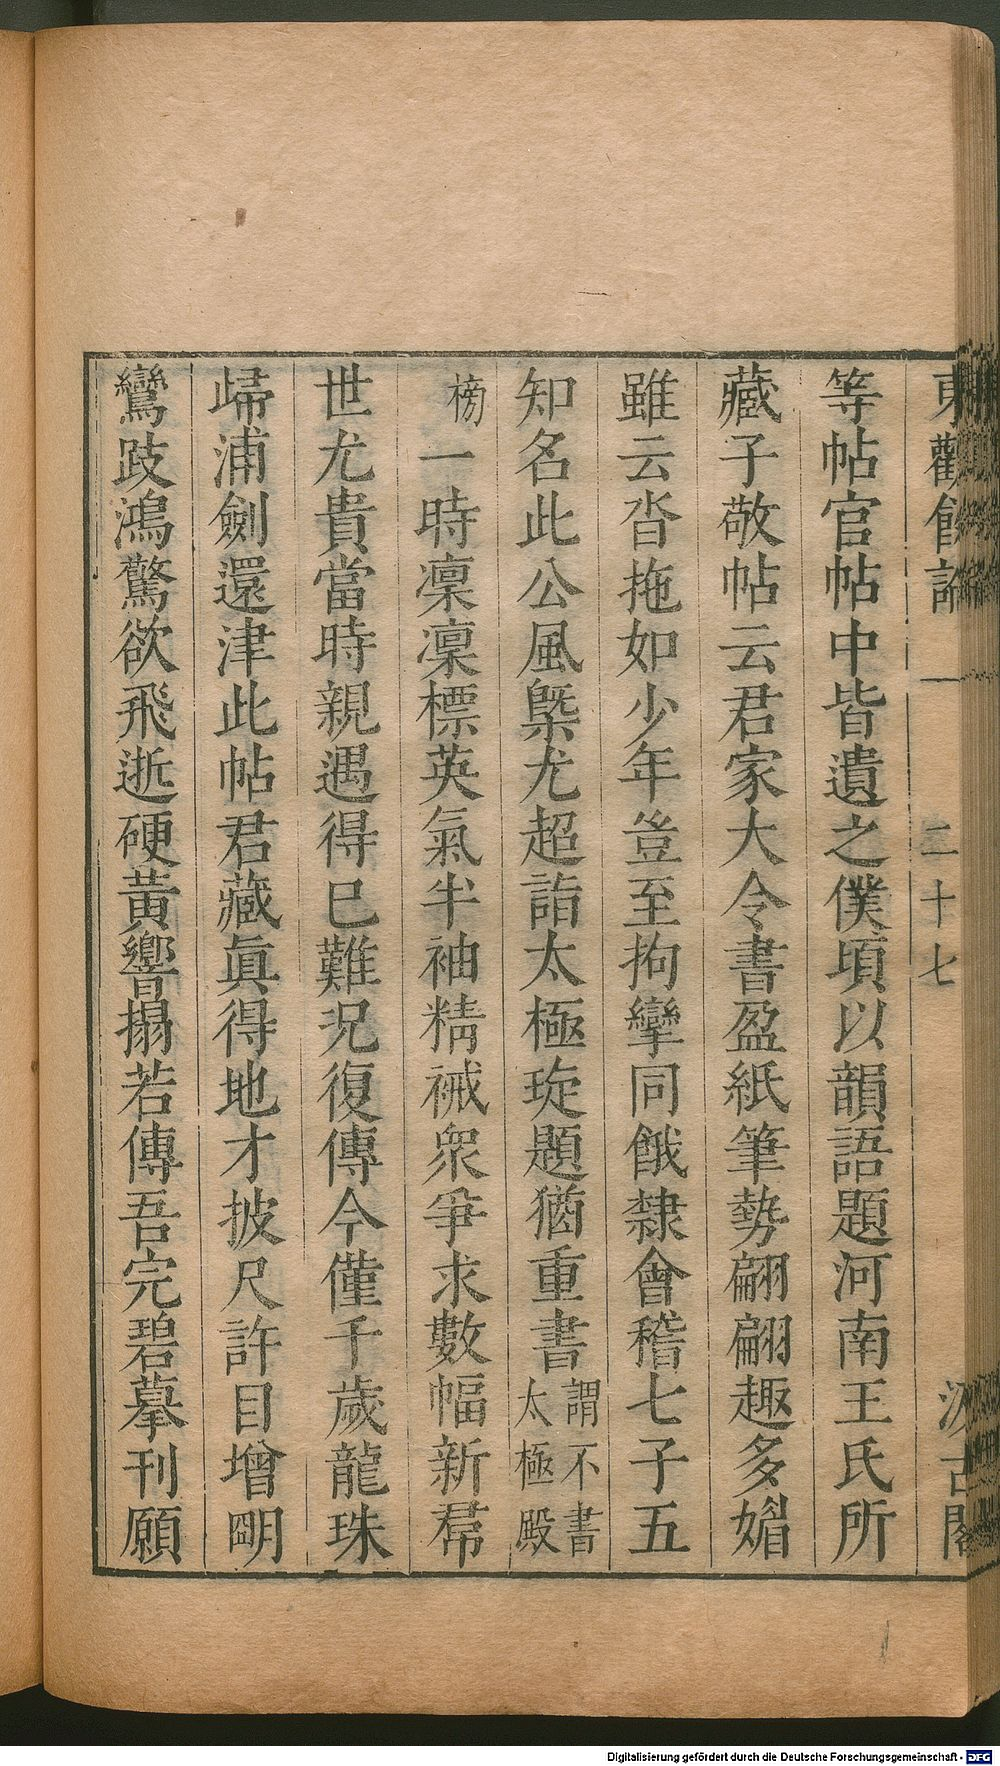 東觀餘論 二十七 汲古閣
等帖官帖中皆遺之僕頃以韻語題河南王氏所
藏子敬帖云君家大令書盈紙筆勢翩翩趣多媚
雖云沓拖如少年豈至拘攣同餓隸會稽七子五
知名此公風槩尤超詣太極琁題猶重書謂不書太極殿
榜一時凛凛標英氣半袖精裓衆爭求數幅新帬
世尤貴當時親遇得已難况復傳今僅千歲龍珠
歸浦劍還津此帖君藏眞得地才披尺許目增朙
鸞跂鴻驚欲飛逝硬黃響搨若傳吾完碧摹刊願
Digitalisierung gefördert durch die Deutsche Forschungsgemeinschaft - DFG